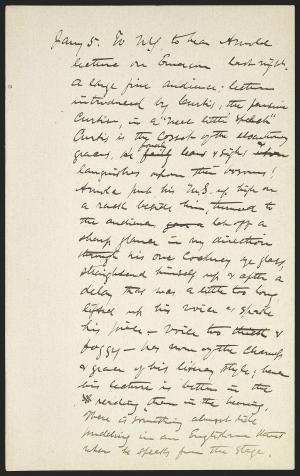 Jany 5. To N.Y. to hear Arnold
lecture on Emerson last night.
A large fine audience; lecture
introduced by Curtis, the famine
Curtis, in a "neat little speech"
Curtis is the corset of the elocutionary
graces, he fairly leans & sighs
languishes upon them!
Arnold put his MS. up high on
a rack beside him, turned to
the audience let off a
sharp glance in my direction
through his one cockney eye glass,
straightened himself up & after a
delay that was a little too long
lifted up his voice & spoke
his piece — voice too thick &
foggy — has none of the charm
& grace of his literary style; hence
his lecture is better in the
reading than in the hearing.
There is something almost like
pudding in an Englishman's throat
when he speaks from the stage.